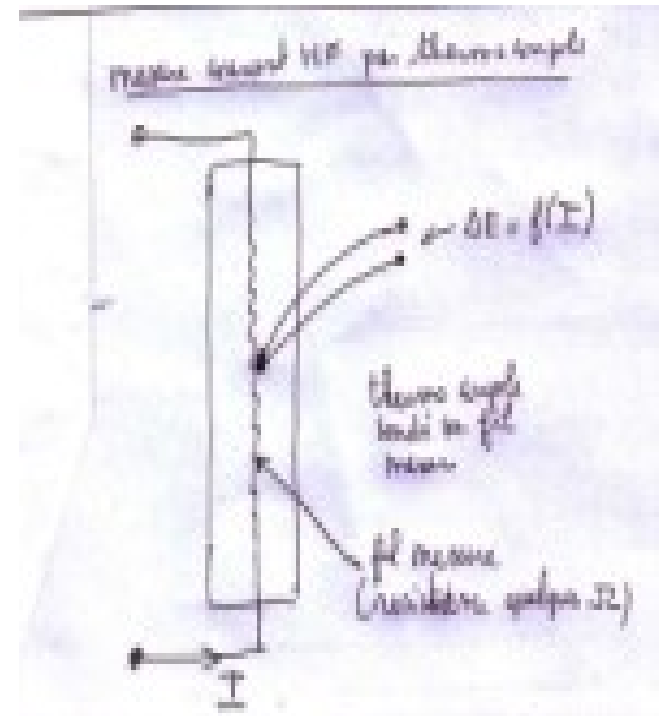 mesure courant HF par thermocouple
ΔE = f(I)
thermo couple
soudé sur fil
mesure
fil mesure
(résistance quelques Ω)
I